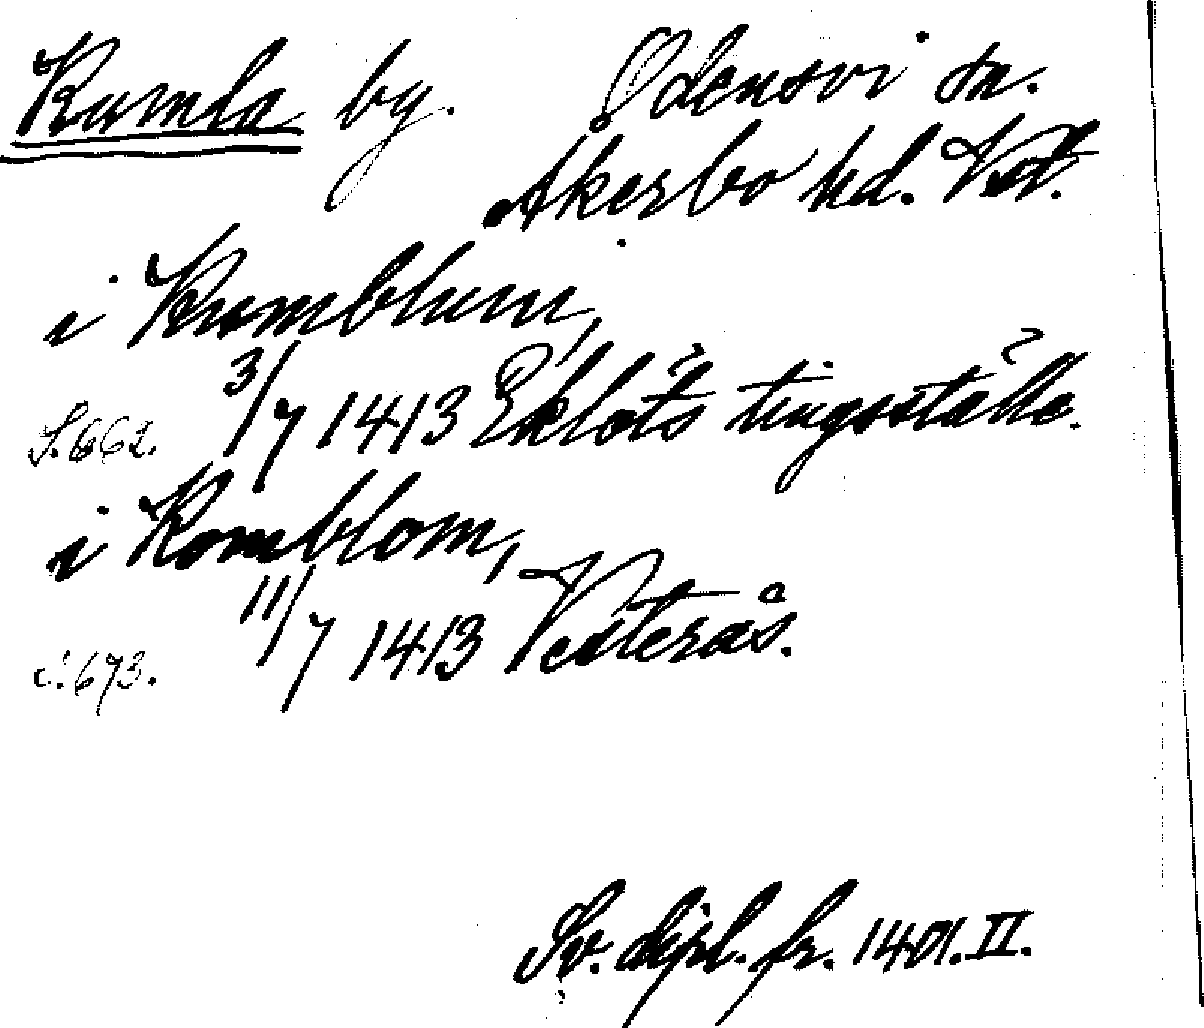 Kumla by. Odensvi sn.
Åkerbo hd. Vstm.
i Kumblum,
S. 662. 3/7 1413 Eklöts tingsställe.
i Komblom,
S. 673. 11/7 1413 Vesterås.
Sv. dipl. fr. 1401. II.